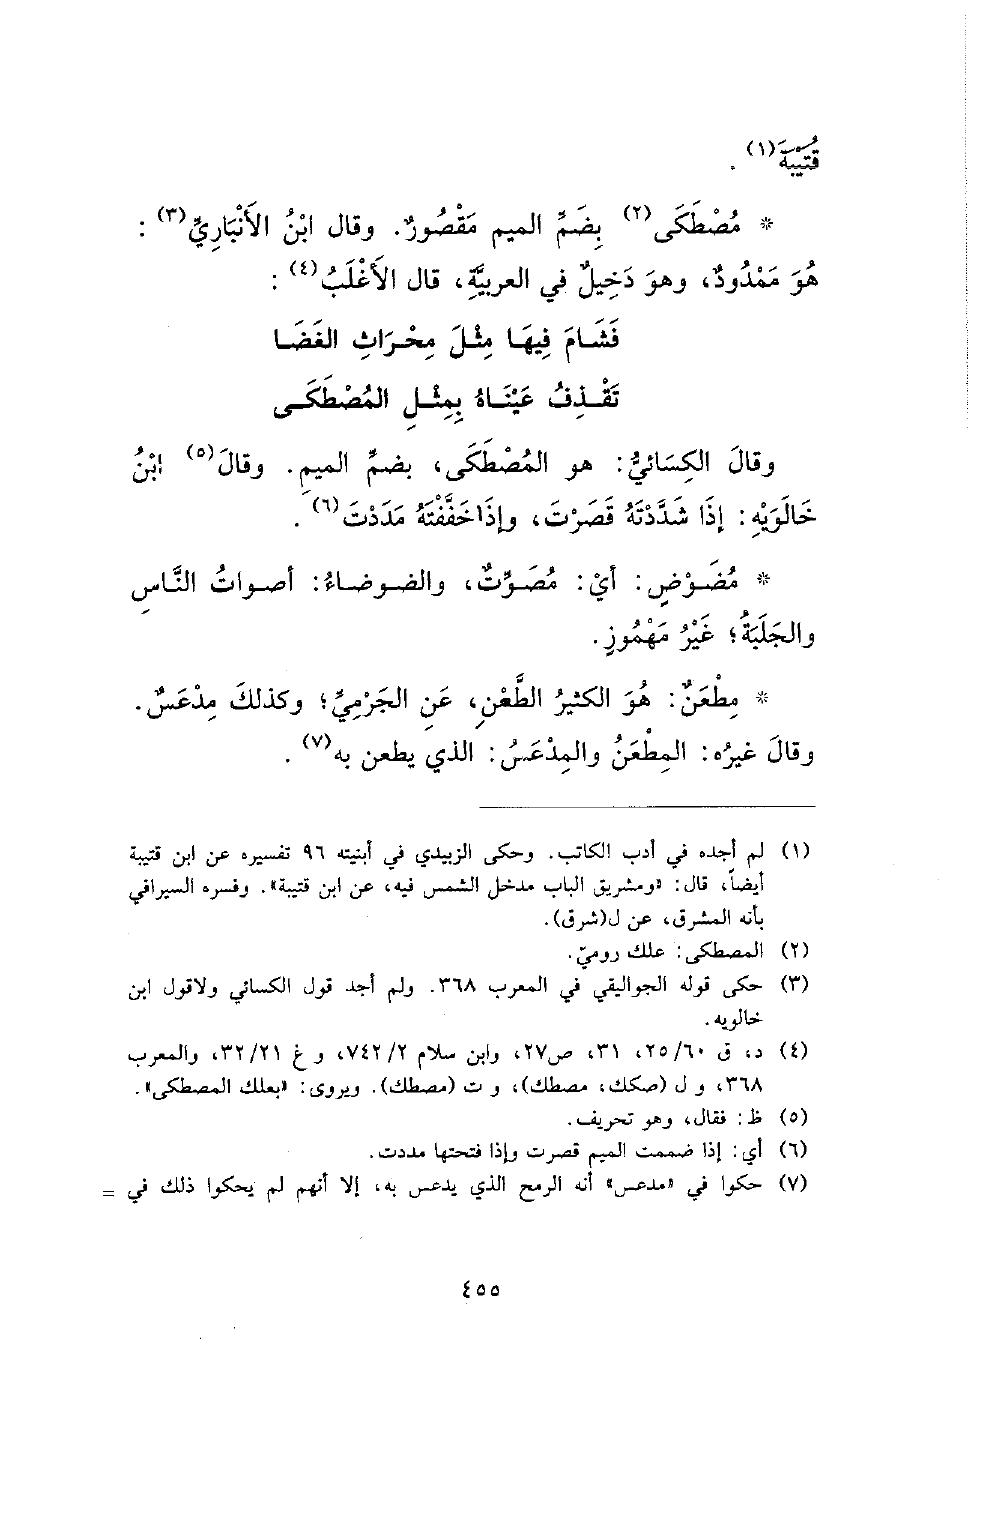 قُتَيْبَةَ(١) .
* مُصْطَكَى(٢) بِضَمِّ الميم مَقْصُورٌ. وقال ابْنُ الأَنْبَارِيِّ(٣) :
هُوَ مَمْدُودٌ، وهوَ دَخِيلٌ في العربيَّةِ، قال الأَغْلَبُ(٤) :
فَشَامَ فِيهَا مِثْلَ مِحْرَاثِ الغَضَا
تَقْذِفُ عَيْنَاهُ بِمِثْلِ المُصْطَكَى
وقالَ الكِسَائيُّ: هو المُصْطَكَى، بضمِّ الميمِ. وقالَ(٥) ابْنُ
خَالَوَيْهِ: إذَا شَدَّدْتَهُ قَصَرْتَ، وإذَا خَفَّفْتَهُ مَدَدْتَ(٦) .
* مُضَوْضٍ: أيْ: مُصَوِّتٌ، والضوضاءُ: أصواتُ النَّاسِ
والجَلَبَةُ؛ غَيْرُ مَهْمُوزٍ.
* مِطْعَنٌ: هُوَ الكثيرُ الطَّعْنِ، عَنِ الجَرْمِيِّ؛ وكذلكَ مِدْعَسٌ.
وقالَ غيرُه: المِطْعَنُ والمِدْعَسُ: الذي يطعن به(٧) .
(١) لم أجده في أدب الكاتب. وحكى الزبيدي في أبنيته ٩٦ تفسيره عن ابن قتيبة
أيضاً، قال: «ومشريق الباب مدخل الشمس فيه، عن ابن قتيبة». وفسره السيرافي
بأنه المشرق، عن ل(شرق).
(٢) المصطكى: علك روميّ.
(٣) حكى قوله الجواليقي في المعرب ٣٦٨. ولم أجد قول الكسائي ولاقول ابن
خالويه.
(٤) د، ق ٢٥/٦٠، ٣١، ص٢٧، وابن سلام ٧٤٢/٢، و غ ٣٢/٢١، والمعرب
٣٦٨، و ل (صكك، مصطك)، و ت (مصطك). ويروى: «بعلك المصطكى».
(٥) ظ: فقال، وهو تحريف.
(٦) أي: إذا ضممت الميم قصرت وإذا فتحتها مددت.
(٧) حكوا في «مدعس» أنه الرمح الذي يدعس به، إلا أنهم لم يحكوا ذلك في =
٤٥٥